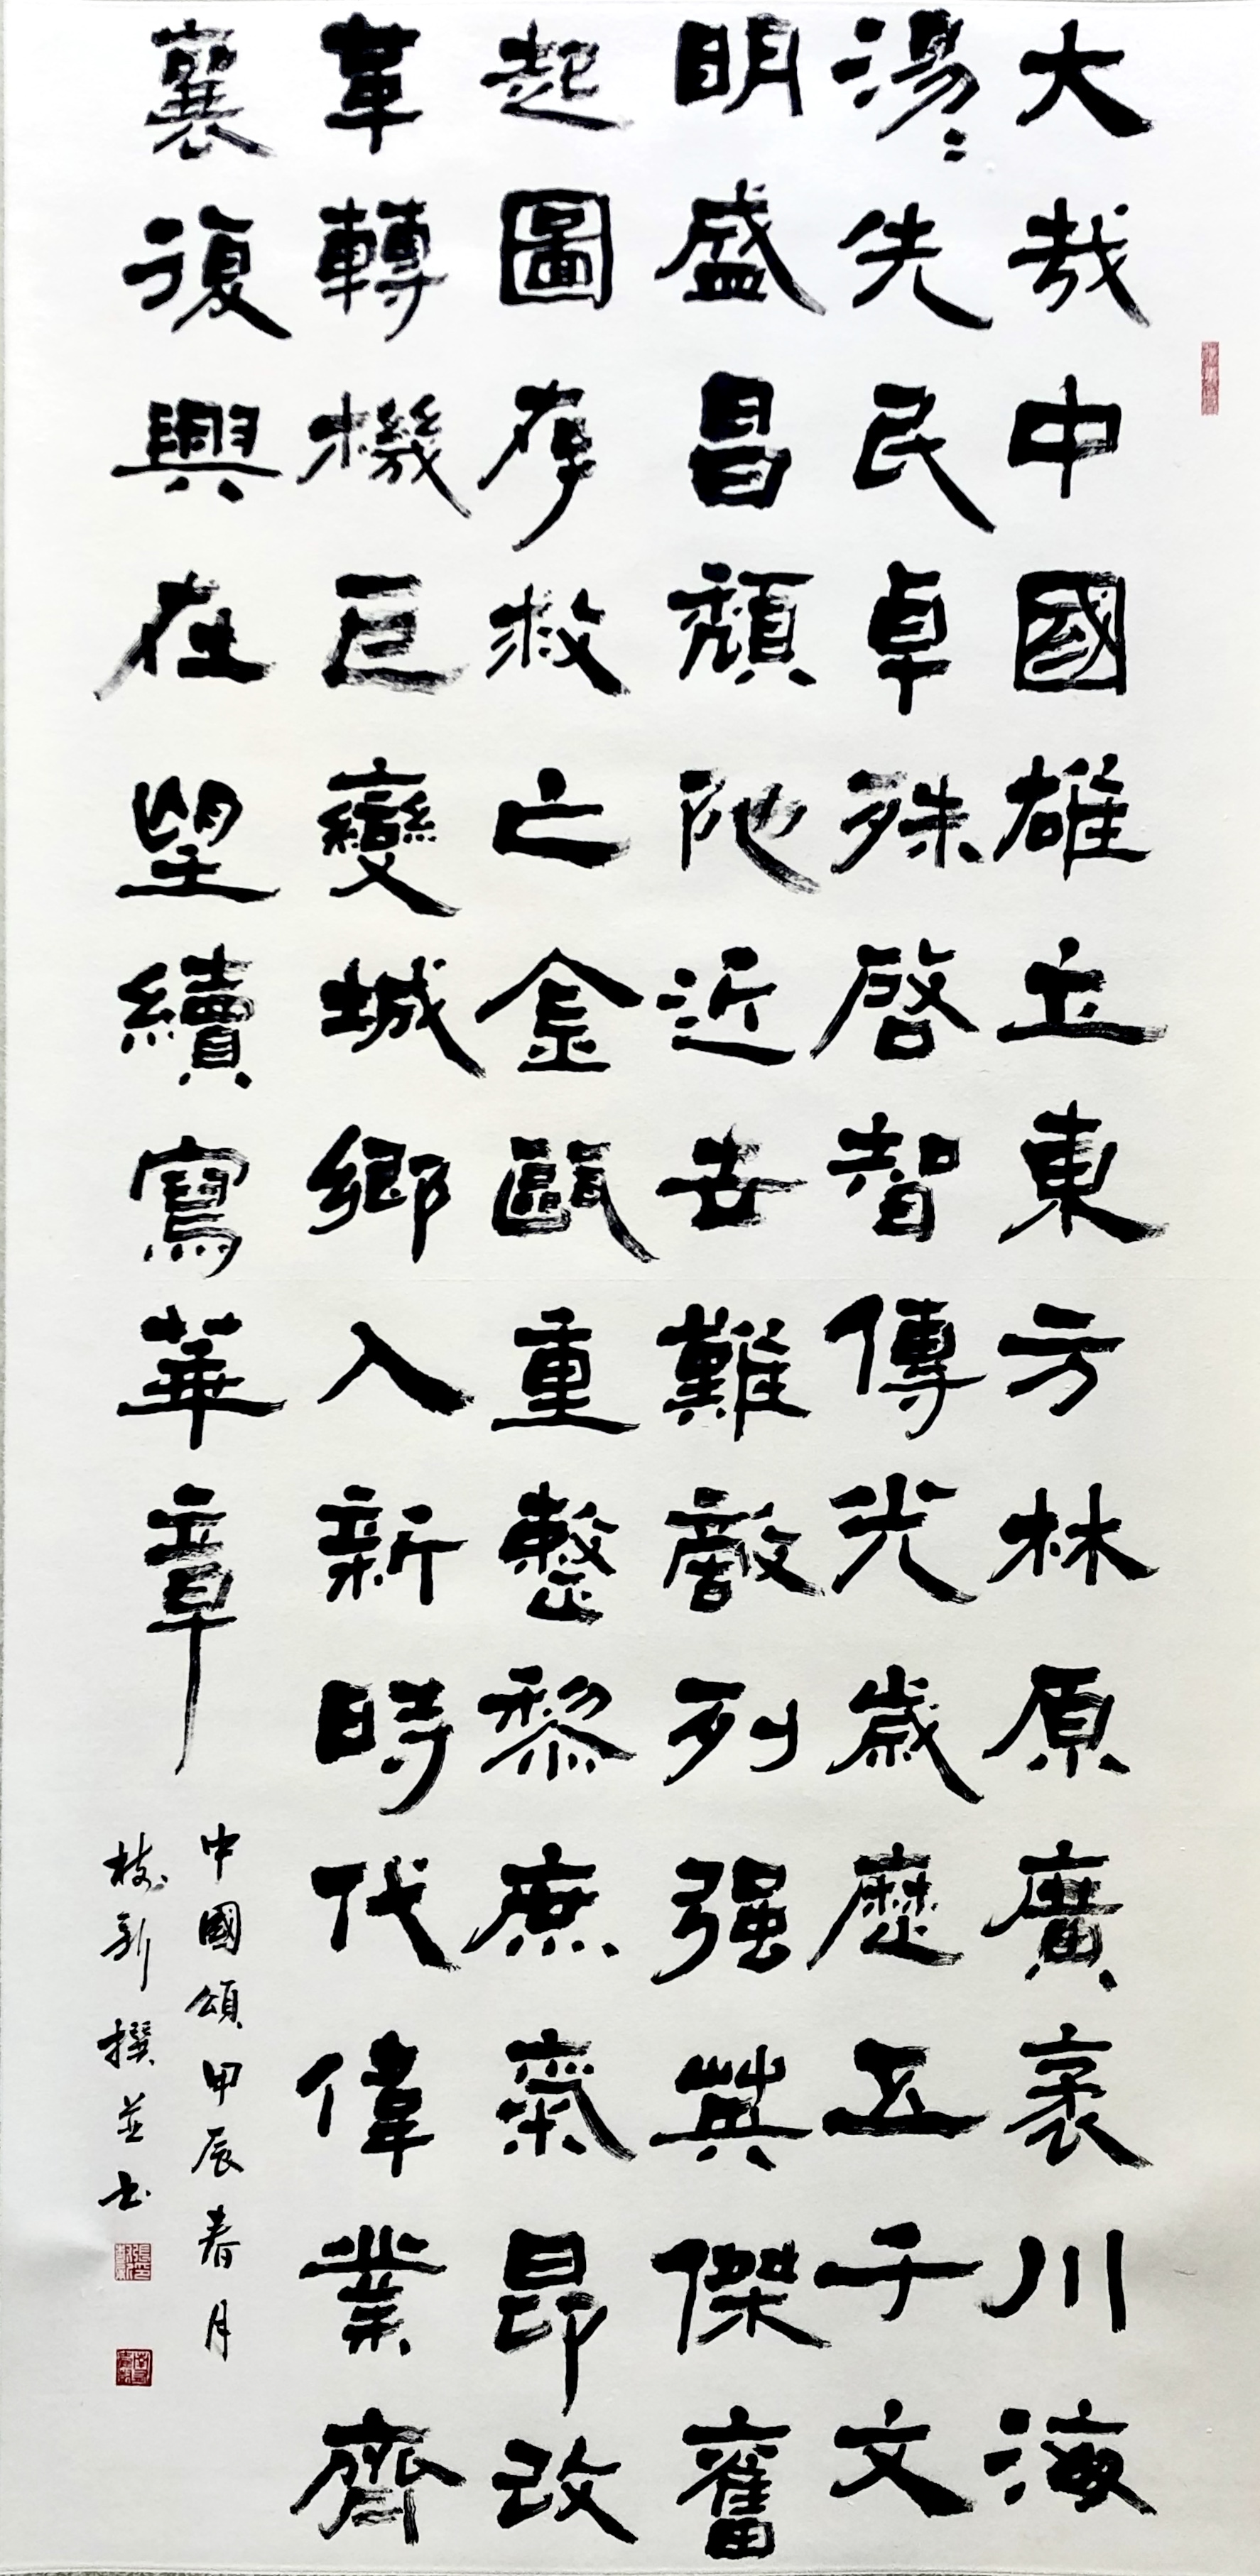 大哉中國雄立東方林原廣袤川海
湯〻先民卓殊啓智傳光歲歷五千文
明盛昌頹阤近世難敵列强英傑奮
起圖存救亡金甌重整黎庶氣昂改
革轉機巨變城鄉入新時代偉業齊
襄復興在望續寫華章
中國頌甲辰春月
樹新撰並书